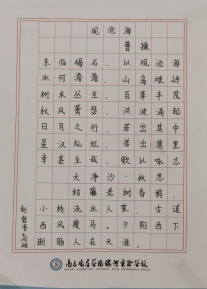 观沧海
曹操
东临碣石，以观沧海
水何澹澹，山岛竦峙
树木丛生，百草丰茂
秋风萧瑟，洪波涌起
日月之行，若出其中
星汉灿烂，若出其里
幸甚至哉，歌以咏志
天净沙·秋思
枯藤老树昏鸦
小桥流水人家，古道
西风瘦马。夕阳西下
断肠人在天涯。